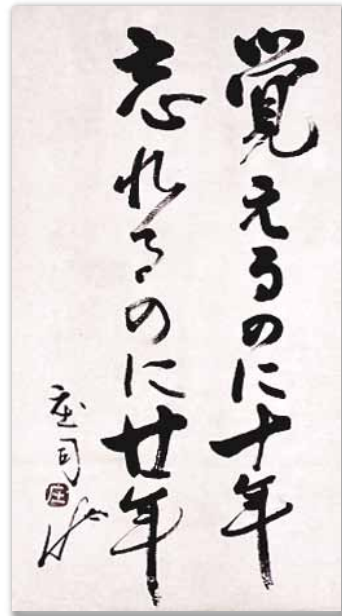 覚えるのに十年
忘れるのに廿年
庄司
庄